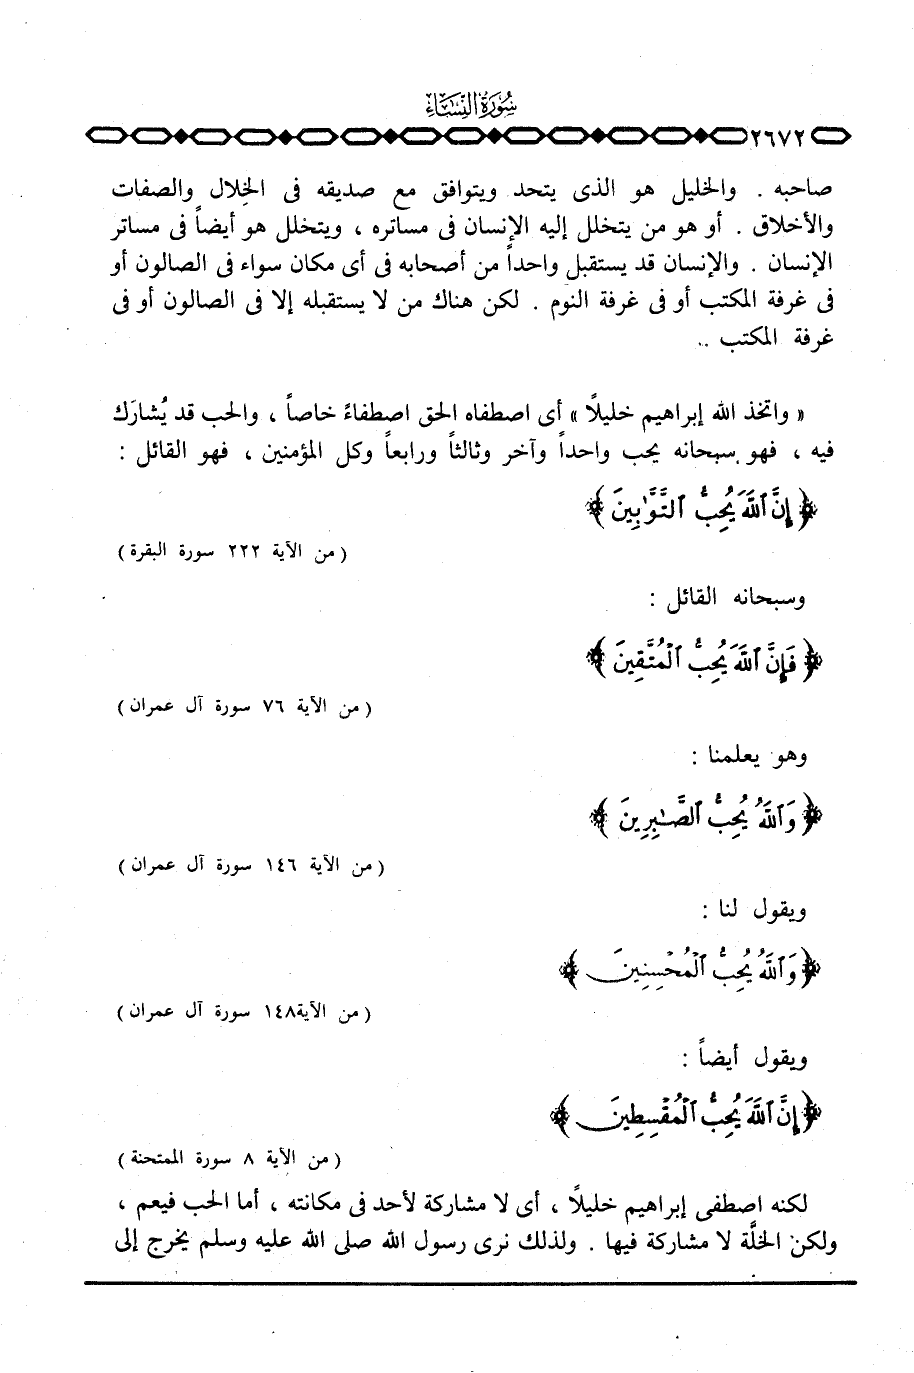 سُورَةُ النِّسَاءِ
٢٦٧٢
صاحبه . والخليل هو الذى يتحد ويتوافق مع صديقه فى الخِلال والصفات
والأخلاق . أو هو من يتخلل إليه الإنسان فى مساتره ، ويتخلل هو أيضاً فى مساتر
الإنسان . والإنسان قد يستقبل واحداً من أصحابه فى أى مكان سواء فى الصالون أو
فى غرفة المكتب أو فى غرفة النوم . لكن هناك من لا يستقبله إلا فى الصالون أو فى
غرفة المكتب ..
« واتخذ الله إبراهيم خليلًا » أى اصطفاه الحق اصطفاءً خاصاً ، والحب قد يُشارَك
فيه ، فهو سبحانه يحب واحداً وآخر وثالثاً ورابعاً وكل المؤمنين ، فهو القائل :
﴿ إِنَّ ٱللَّهَ يُحِبُّ ٱلتَّوَّٰبِينَ ﴾
( من الآية ٢٢٢ سورة البقرة )
وسبحانه القائل :
﴿ فَإِنَّ ٱللَّهَ يُحِبُّ ٱلْمُتَّقِينَ ﴾
( من الآية ٧٦ سورة آل عمران )
وهو يعلمنا :
﴿ وَٱللَّهُ يُحِبُّ ٱلصَّٰبِرِينَ ﴾
( من الآية ١٤٦ سورة آل عمران )
ويقول لنا :
﴿ وَٱللَّهُ يُحِبُّ ٱلْمُحْسِنِينَ ﴾
( من الآية١٤٨ سورة آل عمران )
ويقول أيضاً :
﴿ إِنَّ ٱللَّهَ يُحِبُّ ٱلْمُقْسِطِينَ ﴾
( من الآية ٨ سورة الممتحنة )
لكنه اصطفى إبراهيم خليلًا ، أى لا مشاركة لأحد فى مكانته ، أما الحب فيعم ،
ولكن الخلَّة لا مشاركة فيها . ولذلك نرى رسول الله صلى الله عليه وسلم يخرج إلى